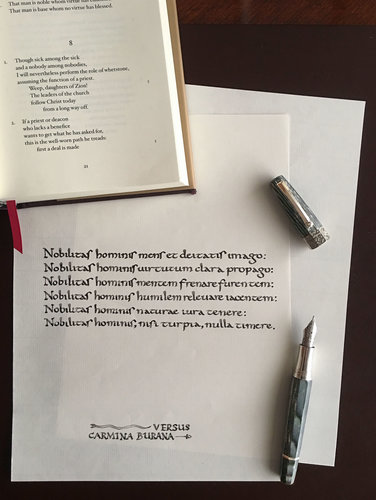 That man is noble whom virtue has
That man is base whom no virtue has blessed.
8
1. Though sick among the sick
and a nobody among nobodies,
I will nevertheless perform the role of whetstone,
assuming the function of a priest.
Weep, daughters of Zion!
The leaders of the church
follow Christ today
from a long way off.
2. If a priest or deacon
who lacks a benefice
wants to get what he has asked for,
this is the well-worn path he treads:
first a deal is made
21
Nobilitas hominis mens et deitatis imago:
Nobilitas hominis uirtutum clara propago:
Nobilitas hominis mentem frenare furentem:
Nobilitas hominis humilem releuare iacentem:
Nobilitas hominis naturae iura tenere:
Nobilitas hominis, nisi turpia, nulla timere.
VERSUS
CARMINA BURANA